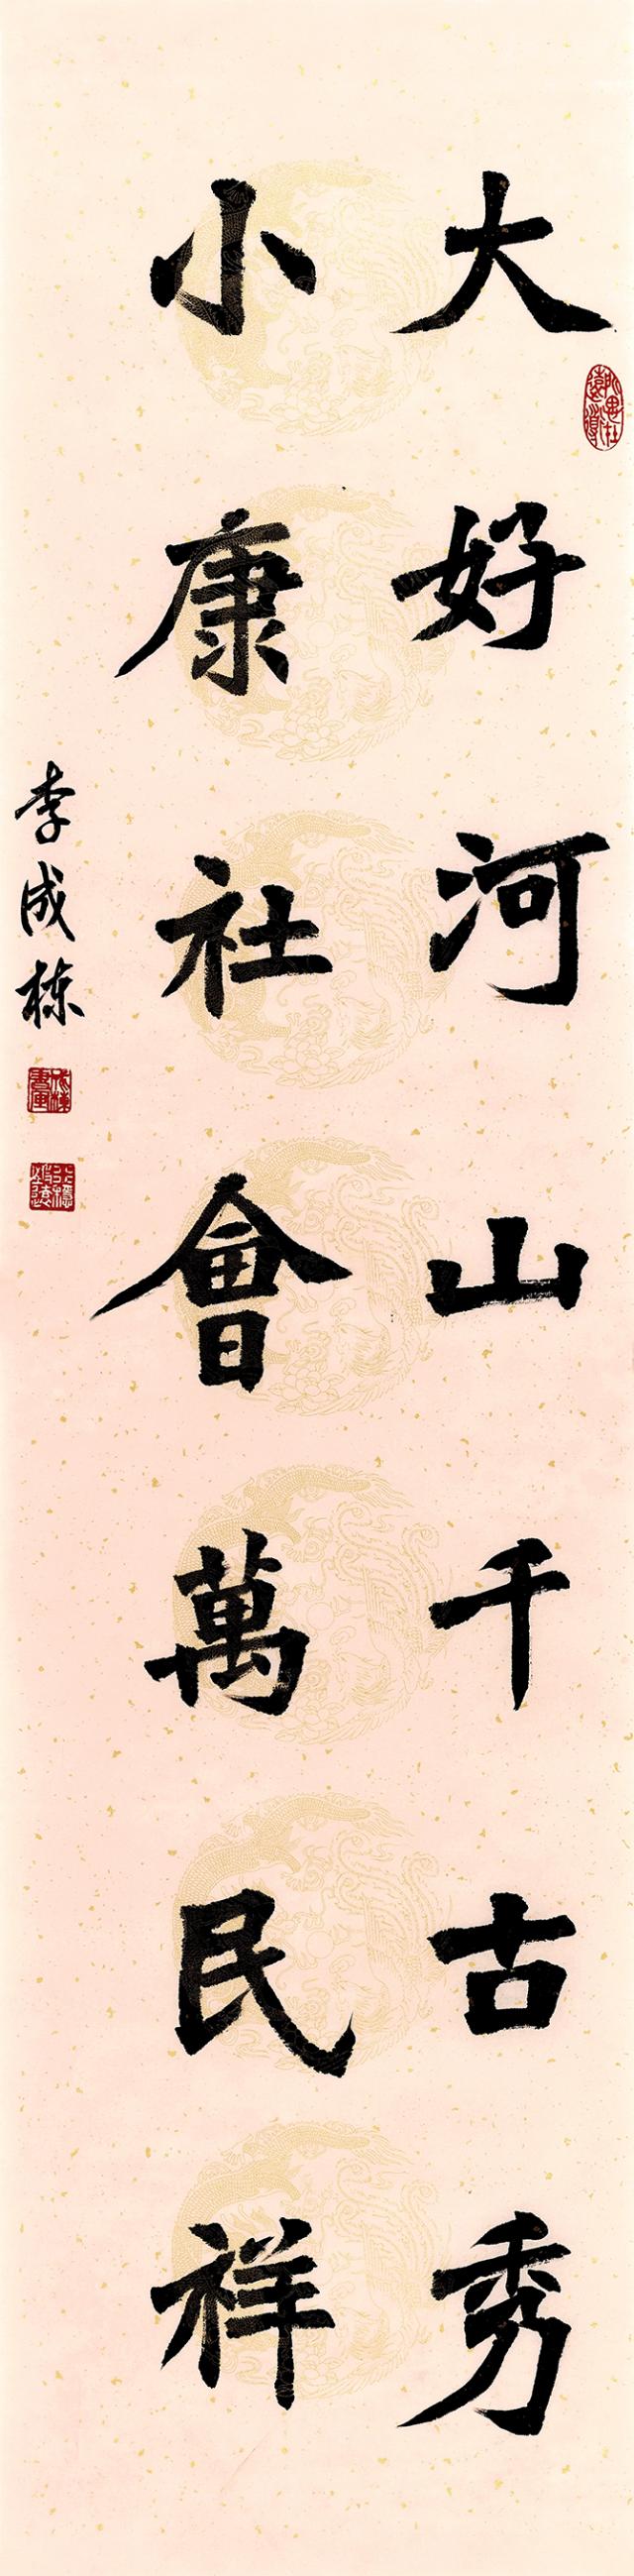 大好河山千古秀
小康社會萬民祥
李成栋